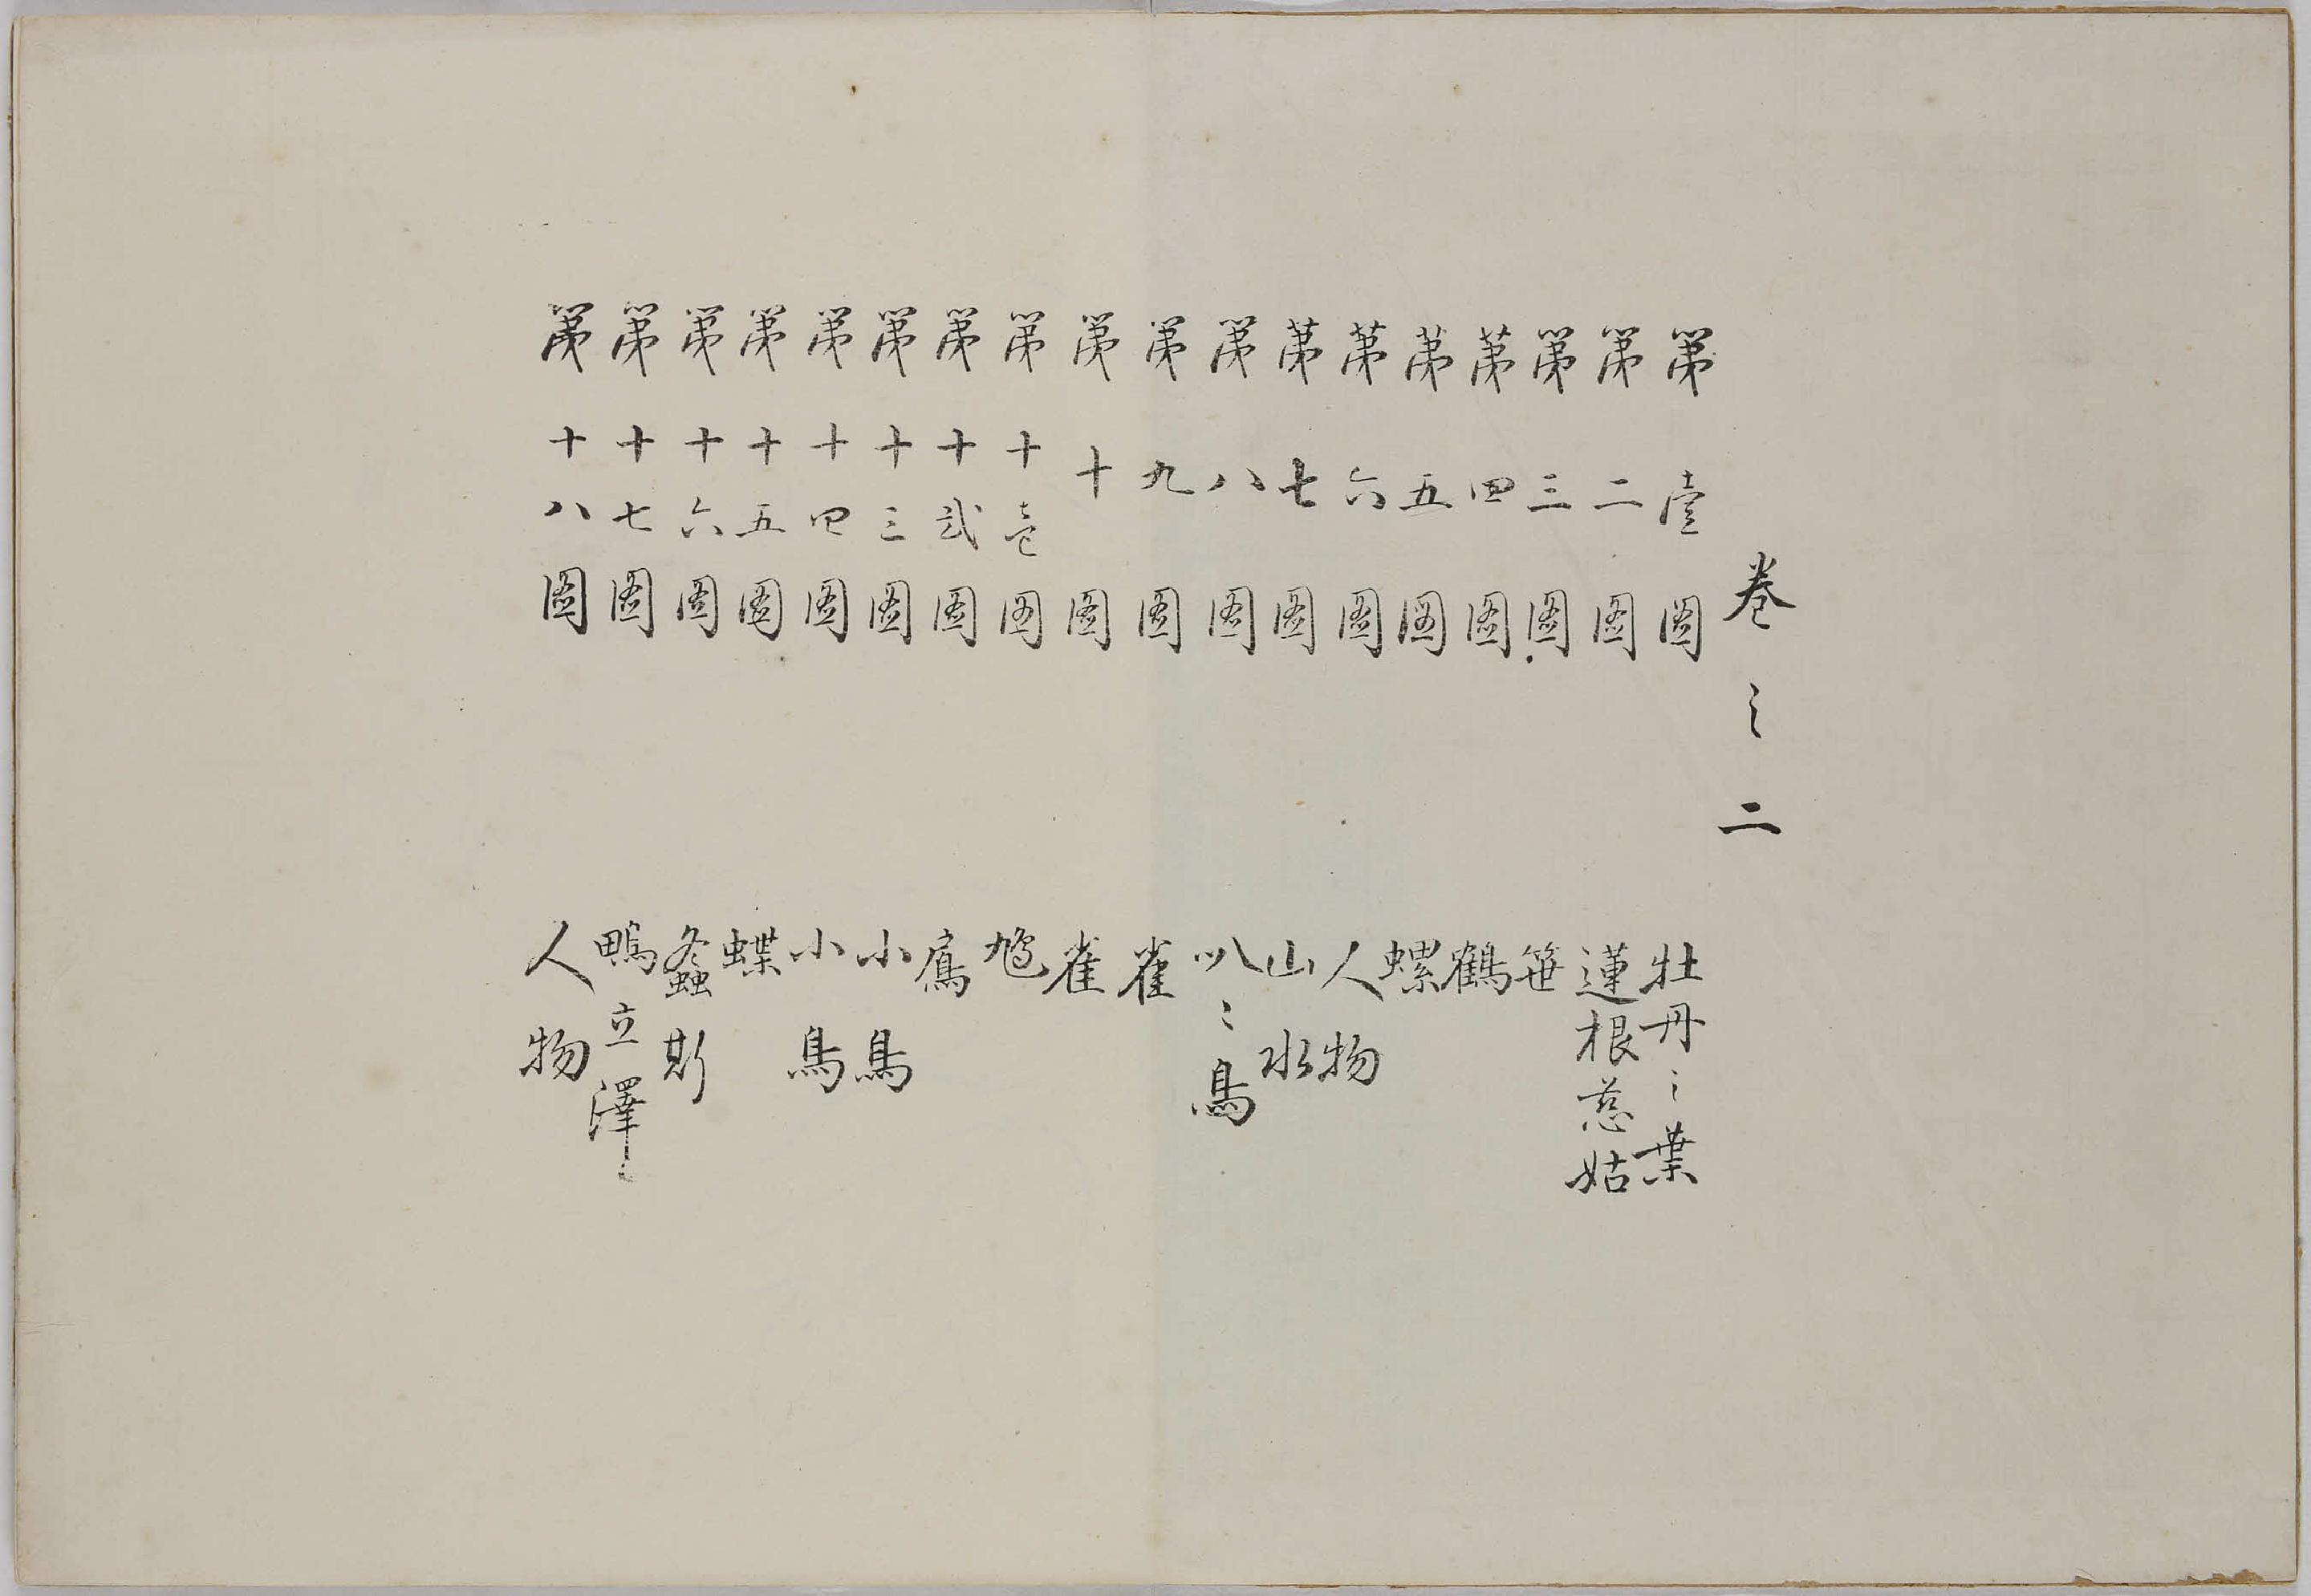 巻之二
第壹圖 牡丹之葉
第二圖 蓮根慈姑
第三圖 笹
第四圖 鶴
第五圖 螺
第六圖 人物
第七圖 山水
第八圖 叭々鳥
第九圖 雀
第十圖 雀
第十壱圖 鳩
第十弐圖 鳫
第十三圖 小鳥
第十四圖 小鳥
第十五圖 蝶
第十六圖 螽斯
第十七圖 鴫立澤
第十八圖 人物